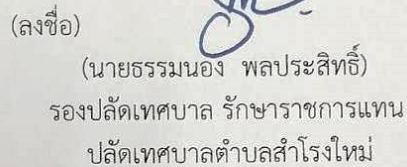 (ลงชื่อ)
(นายธรรมนอง พลประสิทธิ์)
รองปลัดเทศบาล รักษาราชการแทน
ปลัดเทศบาลตำบลสำโรงใหม่